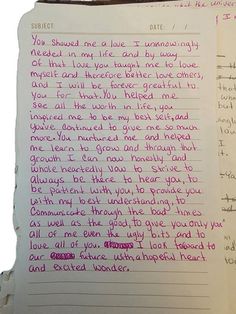 SUBJECT
DATE: / /
You showed me a love I unknowingly
needed in my life and by way
of that love you taught me to love
myself and therefore better love others,
and I will be forever greatful to
you for that. You helped me
see all the worth in life, you
inspired me to be my best self, and
you've continued to give me so much
more. You nurtured me and helped
me learn to grow and through that
growth I can now honestly and
whole heartedly vow to strive to
always be there to hear you, to
be patient with you, to provide you
with my best understanding, to
communicate through the bad times
as well as the good, to give you only you
all of me even the ugly bits and to
love all of you. I look foward to
our future with a hopeful heart
and excited wonder.